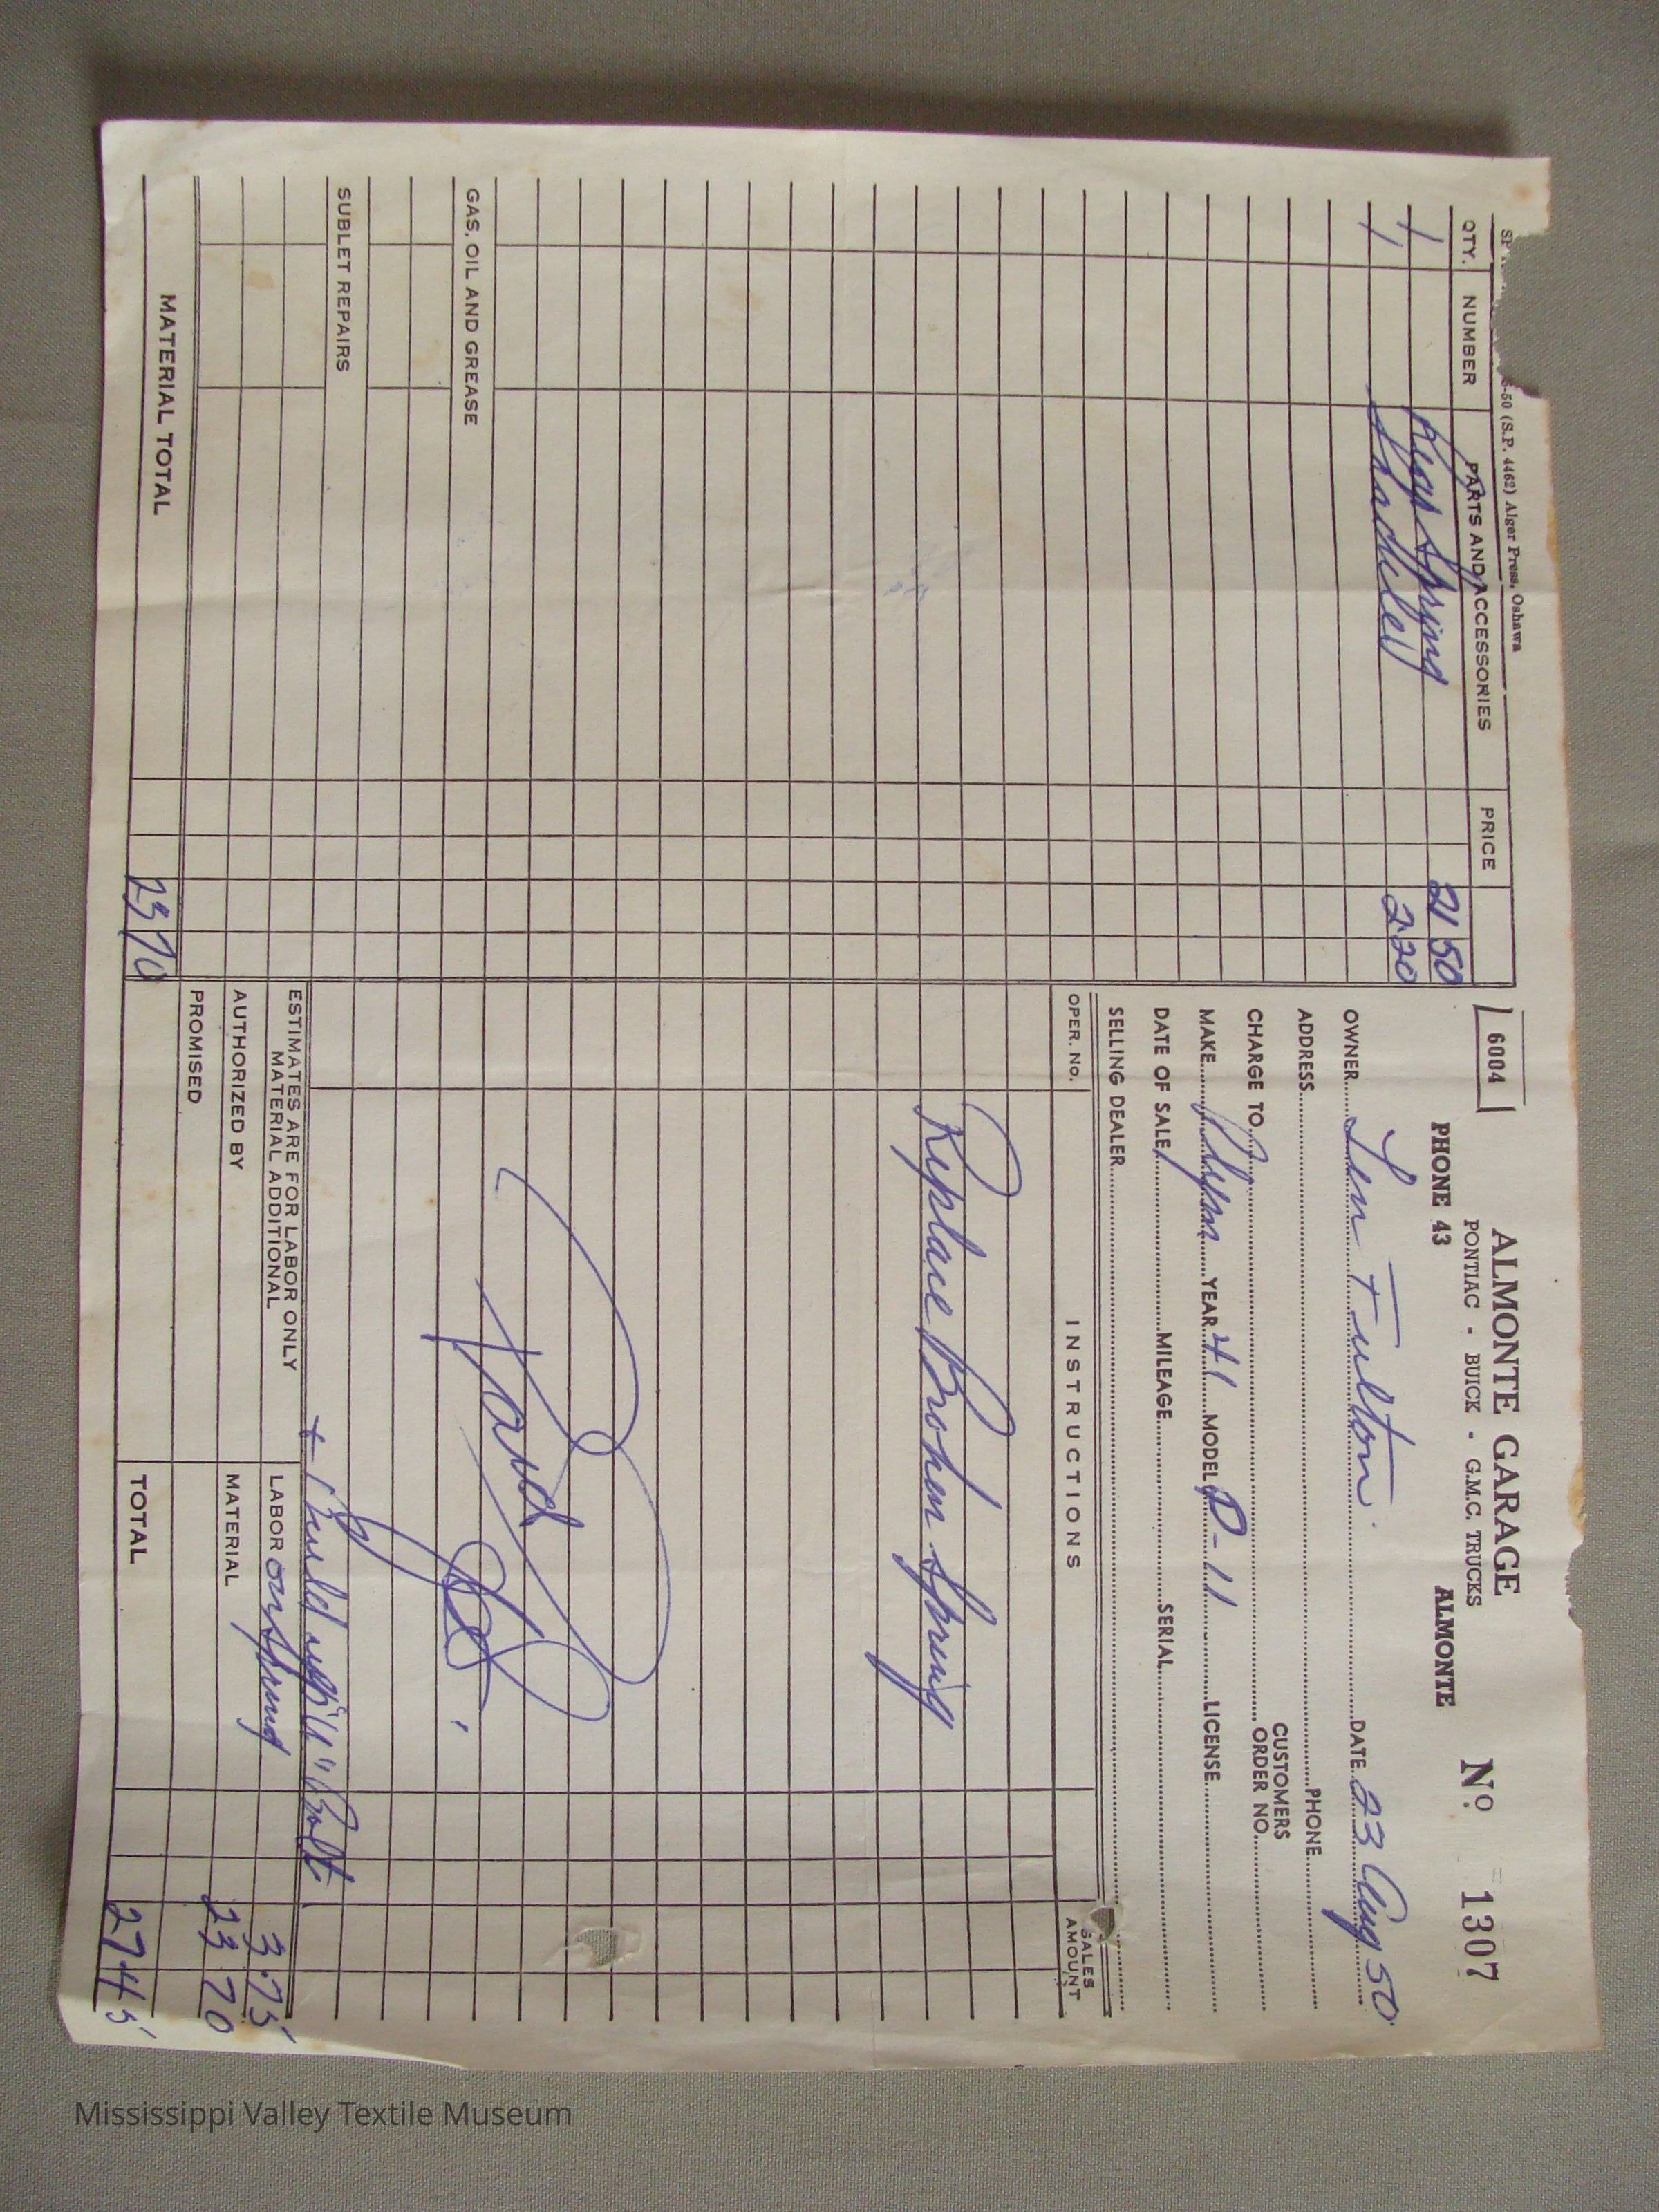 -50 (S.P. 4462) Alger Press, Oshawa
QTY. NUMBER PARTS AND ACCESSORIES PRICE
1 Rear Spring 21 50
1 Shackles 2.20
GAS, OIL AND GREASE
SUBLET REPAIRS
MATERIAL TOTAL 23 70
6004
ALMONTE GARAGE
PONTIAC - BUICK - G.M.C. TRUCKS
PHONE 43 ALMONTE
No 1307
OWNER Len Fulton DATE 23 Aug 50
ADDRESS PHONE
CHARGE TO CUSTOMERS ORDER NO.
MAKE Plym YEAR 41 MODEL P-11 LICENSE
DATE OF SALE MILEAGE SERIAL
SELLING DEALER
OPER. NO. INSTRUCTIONS SALES AMOUNT
Replace Broken Spring
Paid
+ Build up "U" Bolt
ESTIMATES ARE FOR LABOR ONLY
MATERIAL ADDITIONAL
LABOR on Spring 3.75
AUTHORIZED BY MATERIAL 23 70
PROMISED
TOTAL 27 45
Mississippi Valley Textile Museum